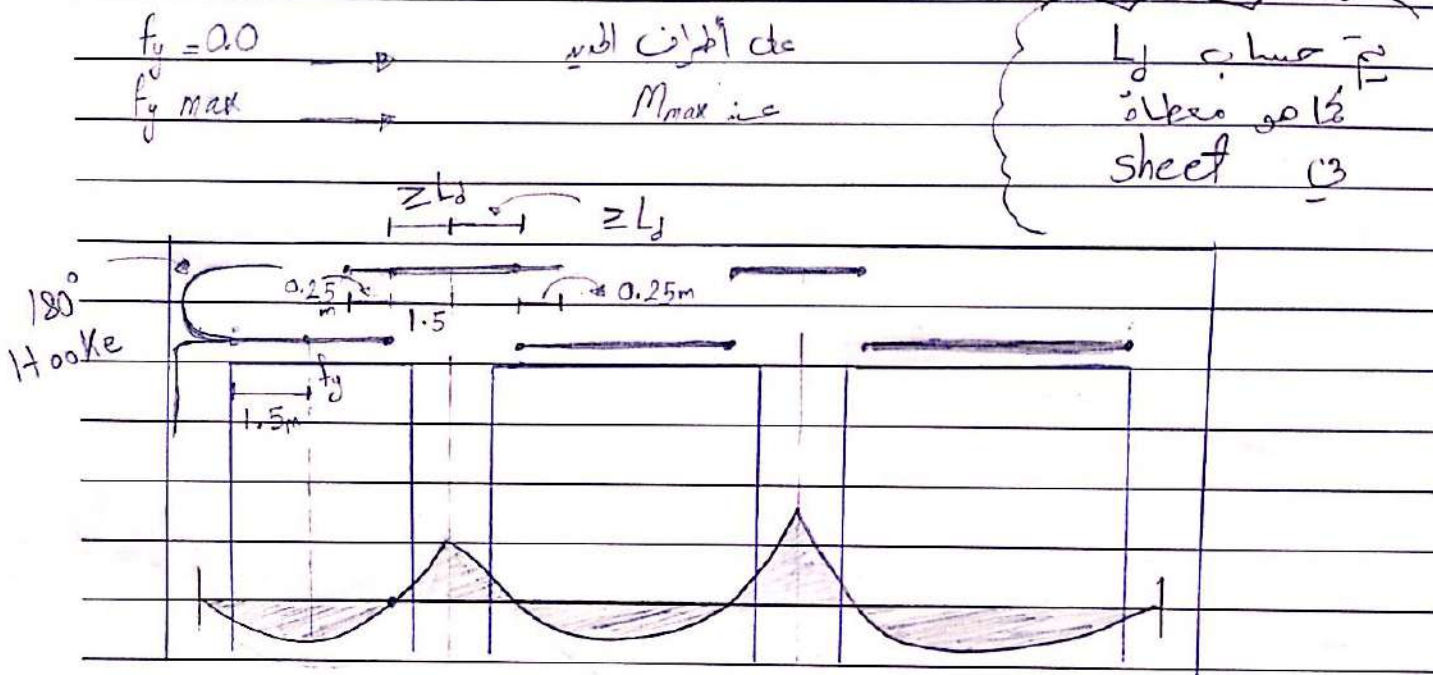 fy = 0.0 → على أطراف الحديد
fy max → عند Mmax
تم حساب Ld
كما هو معطاة
في sheet
≥Ld ≥Ld
180°
Hooke
0.25
m
1.5
0.25m
fy
1.5m